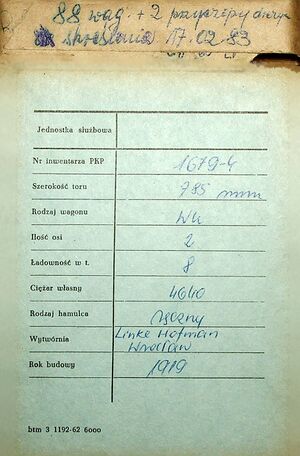 88 wag. + 2 przyczepy
skreślenia 17.02.83
Jednostka służbowa
Nr inwentarza PKP 1679-4
Szerokość toru 785 mm
Rodzaj wagonu
Ilość osi 2
Ładowność w t. 8
Ciężar własny 4640
Rodzaj hamulca ręczny
Wytwórnia Linke Hofman
Wrocław
Rok budowy 1919
btm 3 1192-62 6000